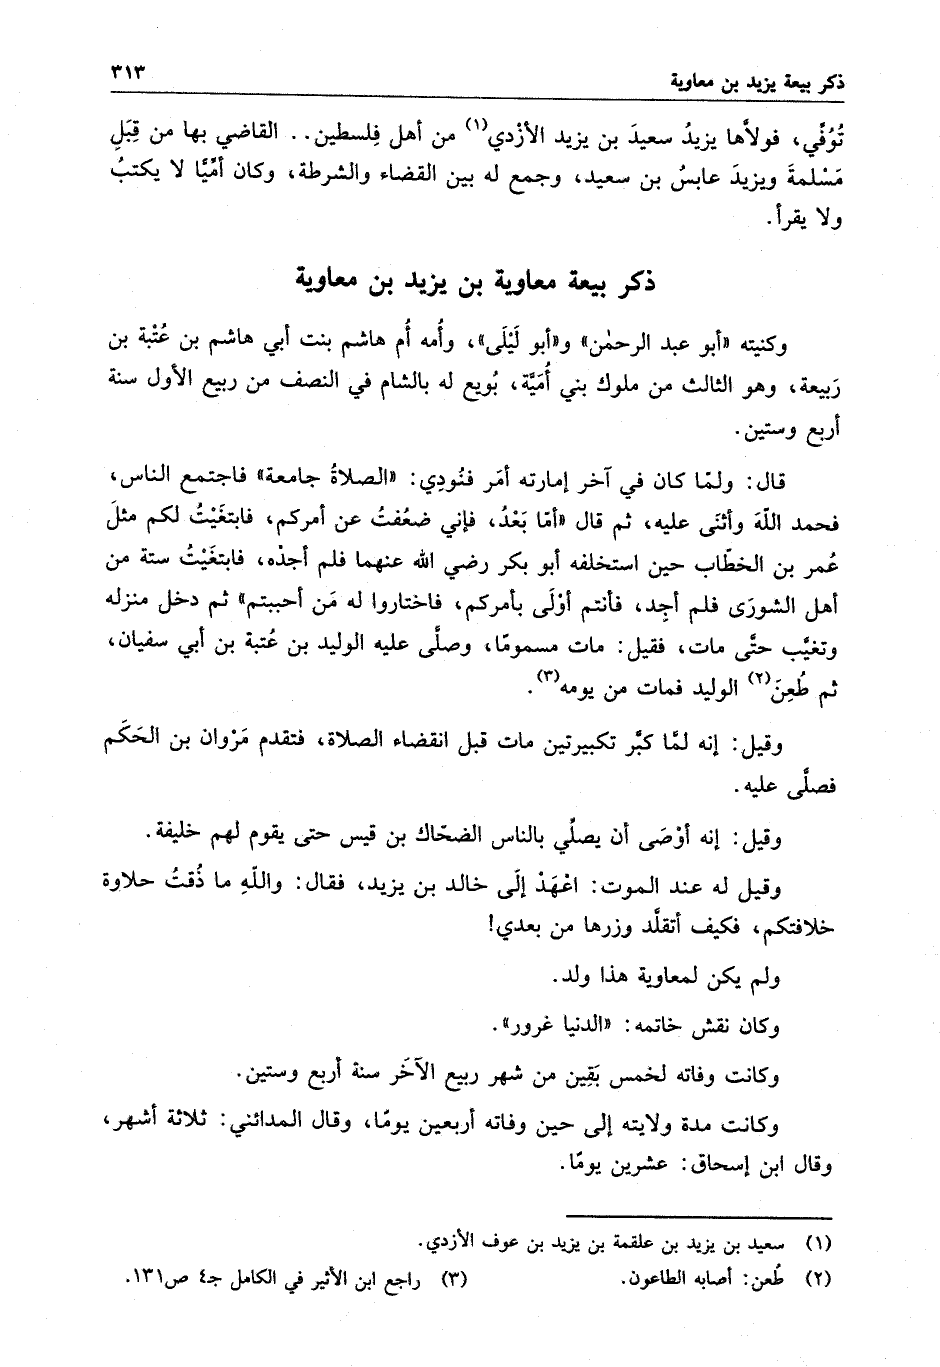 ذكر بيعة يزيد بن معاوية ٣١٣
تُوُفِّي، فولاَّها يزيدُ سعيدَ بن يزيد الأزْدي(١) من أهل فِلسطين.. القاضي بها من قِبَلِ
مَسْلمةَ ويزيدَ عابسُ بن سعيد، وجمع له بين القضاء والشرطة، وكان أمِّيًّا لا يكتبُ
ولا يقرأ.
ذكر بيعة معاوية بن يزيد بن معاوية
وكنيته «أبو عبد الرحمٰن» و«أبو لَيْلَى»، وأُمه أُم هاشم بنت أبي هاشم بن عُتْبة بن
رَبيعة، وهو الثالث من ملوك بني أُمَيَّة، بُويع له بالشام في النصف من ربيع الأول سنة
أربع وستين.
قال: ولمّا كان في آخر إمارته أمَر فنُودِي: «الصلاةُ جامعة» فاجتمع الناس،
فحمد اللّهَ وأثنَى عليه، ثم قال «أمّا بَعْدُ، فإني ضعُفتُ عن أمركم، فابتغَيْتُ لكم مثلَ
عُمر بن الخطّاب حين استخلفه أبو بكر رضي الله عنهما فلم أجدْه، فابتغَيْتُ ستة من
أهل الشورَى فلم أجِد، فأنتم أوْلَى بأمركم، فاختاروا له مَن أحببتم» ثم دخل منزله
وتغيَّب حتَّى مات، فقيل: مات مسمومًا، وصلَّى عليه الوليد بن عُتبة بن أبي سفيان،
ثم طُعِنَ(٢) الوليد فمات من يومه(٣).
وقيل: إنه لمَّا كبَّر تكبيرتين مات قبل انقضاء الصلاة، فتقدم مَرْوان بن الحَكَم
فصلَّى عليه.
وقيل: إنه أوْصَى أن يصلِّي بالناس الضحّاك بن قيس حتى يقوم لهم خليفة.
وقيل له عند الموت: اعْهَدْ إلَى خالد بن يزيد، فقال: واللّهِ ما ذُقتُ حلاوة
خلافتكم، فكيف أتقلَّد وزرها من بعدي!
ولم يكن لمعاوية هذا ولد.
وكان نقش خاتمه: «الدنيا غرور».
وكانت وفاته لخمس بَقِين من شهر ربيع الآخَر سنة أربع وستين.
وكانت مدة ولايته إلى حين وفاته أربعين يومًا، وقال المدائني: ثلاثة أشهر،
وقال ابن إسحاق: عشرين يومًا.
(١) سعيد بن يزيد بن علقمة بن يزيد بن عوف الأزدي.
(٢) طُعن: أصابه الطاعون. (٣) راجع ابن الأثير في الكامل جـ٤ ص١٣١.